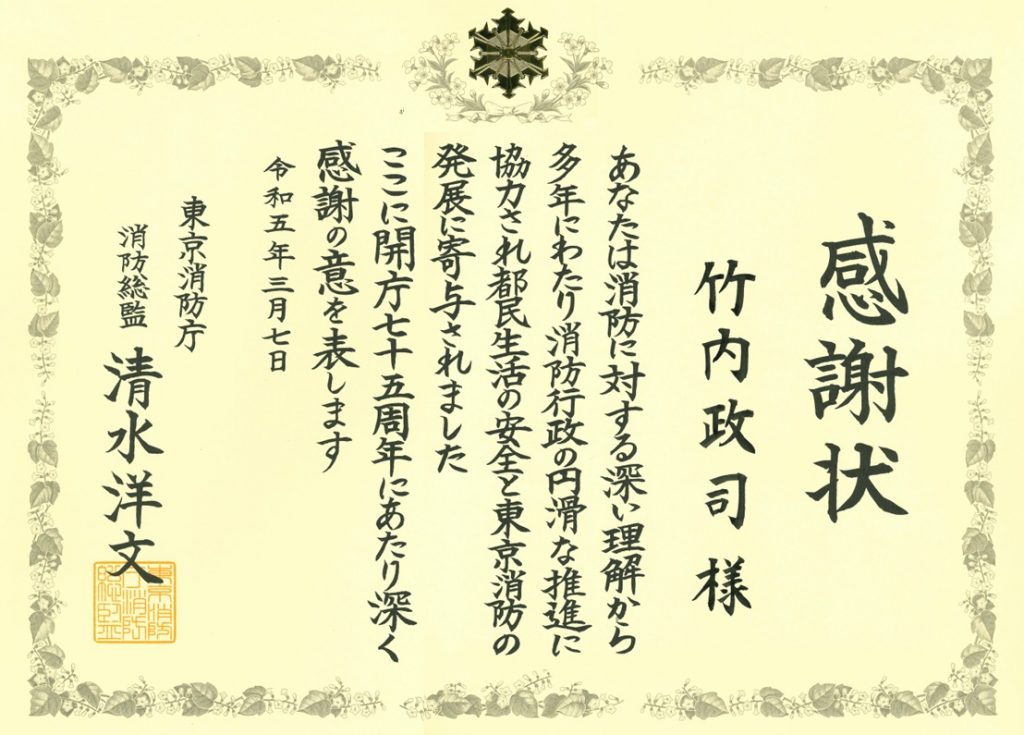 感謝状
竹内政司様
あなたは消防に対する深い理解から
多年にわたり消防行政の円滑な推進に
協力され都民生活の安全と東京消防の
発展に寄与されました
ここに開庁七十五周年にあたり深く
感謝の意を表します
令和五年三月七日
東京消防庁
消防総監 清水洋文
東京消防
庁消防
総監